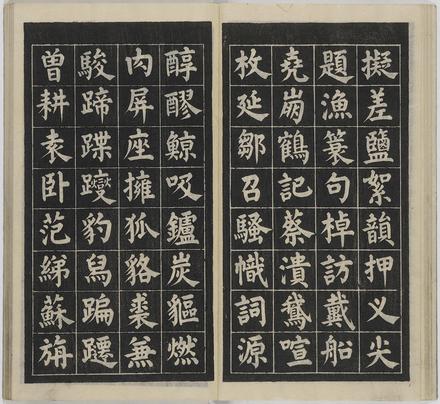 擬差鹽絮韻押叉尖
題漁簑句棹訪戴船
堯崩鶴記蔡潰鵞喧
枚延鄒召騷幟詞源
醇醪鯨吸鑪炭貙燃
肉屏座擁狐貉裘兼
駿蹄蹀躞豹舄蹁躚
曾耕袁臥范綈蘇旃